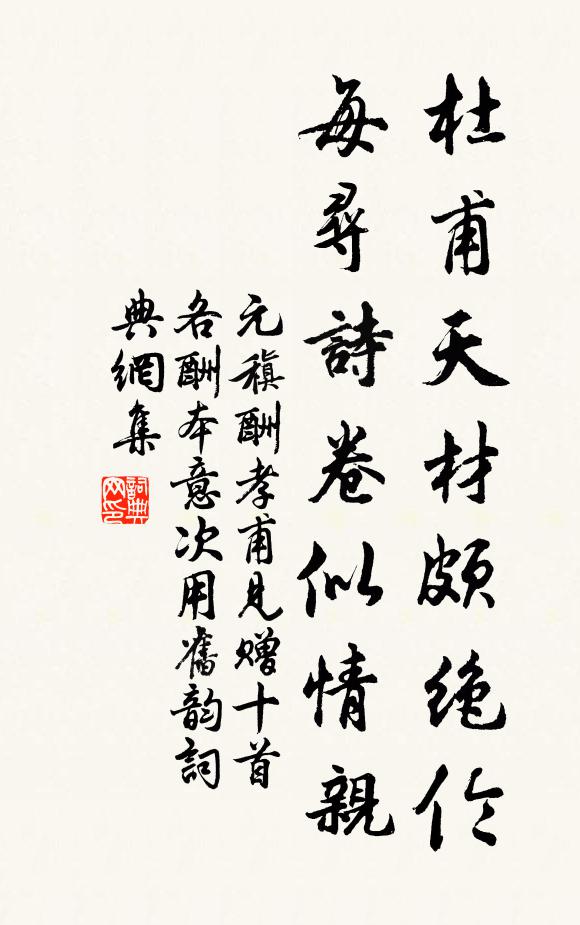 杜甫天材頗絶伦
每尋詩卷似情親
元稹酬孝甫見赠十首
各酬本意次用舊韵詞
典網集
詞典网印